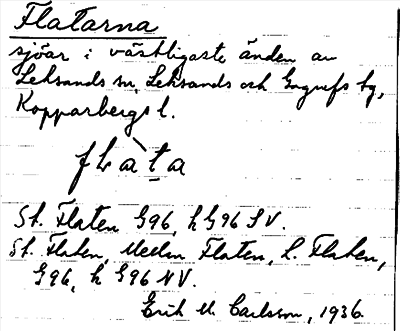 Flatarna
sjöar i västligaste änden av
Leksands sn, Leksands och Gagnefs tg,
Kopparbergs l.
flàta
St. Flaten G96, h G96 SV.
St. Flaten, Mellan Flaten, L. Flaten,
G96, h G96 NV.
Erik M. Carlsson, 1936